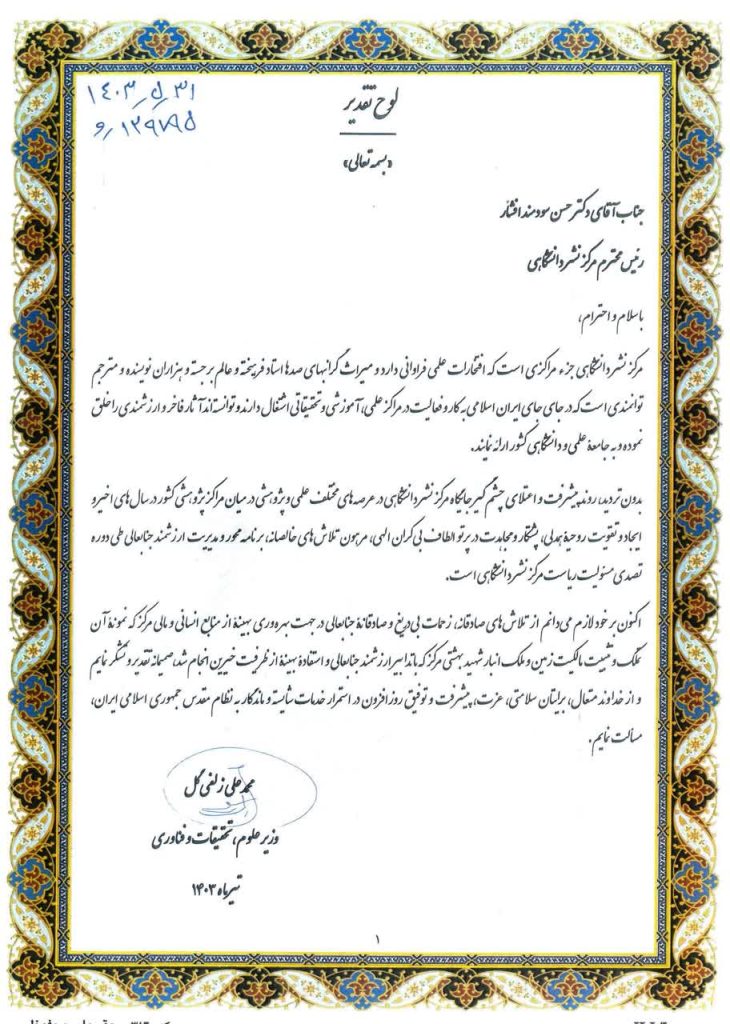 ۱۴۰۳ـ۵ـ۳۱
۱۲۹۷۸۵ر و
لوح تقدیر
«بسمه تعالی»
جناب آقای دکتر حسن سودمند افشار
رئیس محترم مرکز نشر دانشگاهی
با سلام و احترام،
مرکز نشر دانشگاهی جزء مراکزی است که افتخارات علمی فراوانی دارد و میراث گرانبهای صدها استاد فریخته و عالم برجسته و هزاران نویسنده و مترجم
توانمندی است که در جای جای ایران اسلامی به کار و فعالیت در مراکز علمی، آموزشی و تحقیقاتی اشتغال دارند و توانسته‌اند آثار فاخر و ارزشمندی را خلق
نموده و به جامعهٔ علمی و دانشگاهی کشور ارائه نمایند.
بدون تردید، روند پیشرفت و اعتلای چشم‌گیر جایگاه مرکز نشر دانشگاهی در عرصه‌های مختلف علمی و پژوهشی در میان مراکز پژوهشی کشور در سال‌های اخیر و
ایجاد و تقویت روحیهٔ همدلی، پشتکار و مجاهدت در پرتو الطاف بی‌کران الهی، مرهون تلاش‌های خالصانه، برنامه محور و مدیریت ارزشمند جنابعالی طی دوره
تصدی مسئولیت ریاست مرکز نشر دانشگاهی است.
اکنون بر خود لازم می‌دانم از تلاش‌های صادقانه، زحمات بی‌دریغ و صادقانهٔ جنابعالی در جهت بهره‌وری بهینهٔ از منابع انسانی و مالی مرکز که نمونهٔ آن
تملک و تثبیت مالکیت زمین و ملک انبار شهید بهشتی مرکز که با تدابیر ارزشمند جنابعالی و استفادهٔ بهینهٔ از ظرفیت خیرین انجام شد، صمیمانه تقدیر و تشکر نمایم
و از خداوند متعال، برایتان سلامتی، عزت، پیشرفت و توفیق روزافزون در استمرار خدمات شایسته و ماندگار به نظام مقدس جمهوری اسلامی ایران،
مسألت نمایم.
محمدعلی زلفی گل
وزیر علوم، تحقیقات و فناوری
تیرماه ۱۴۰۳
۱